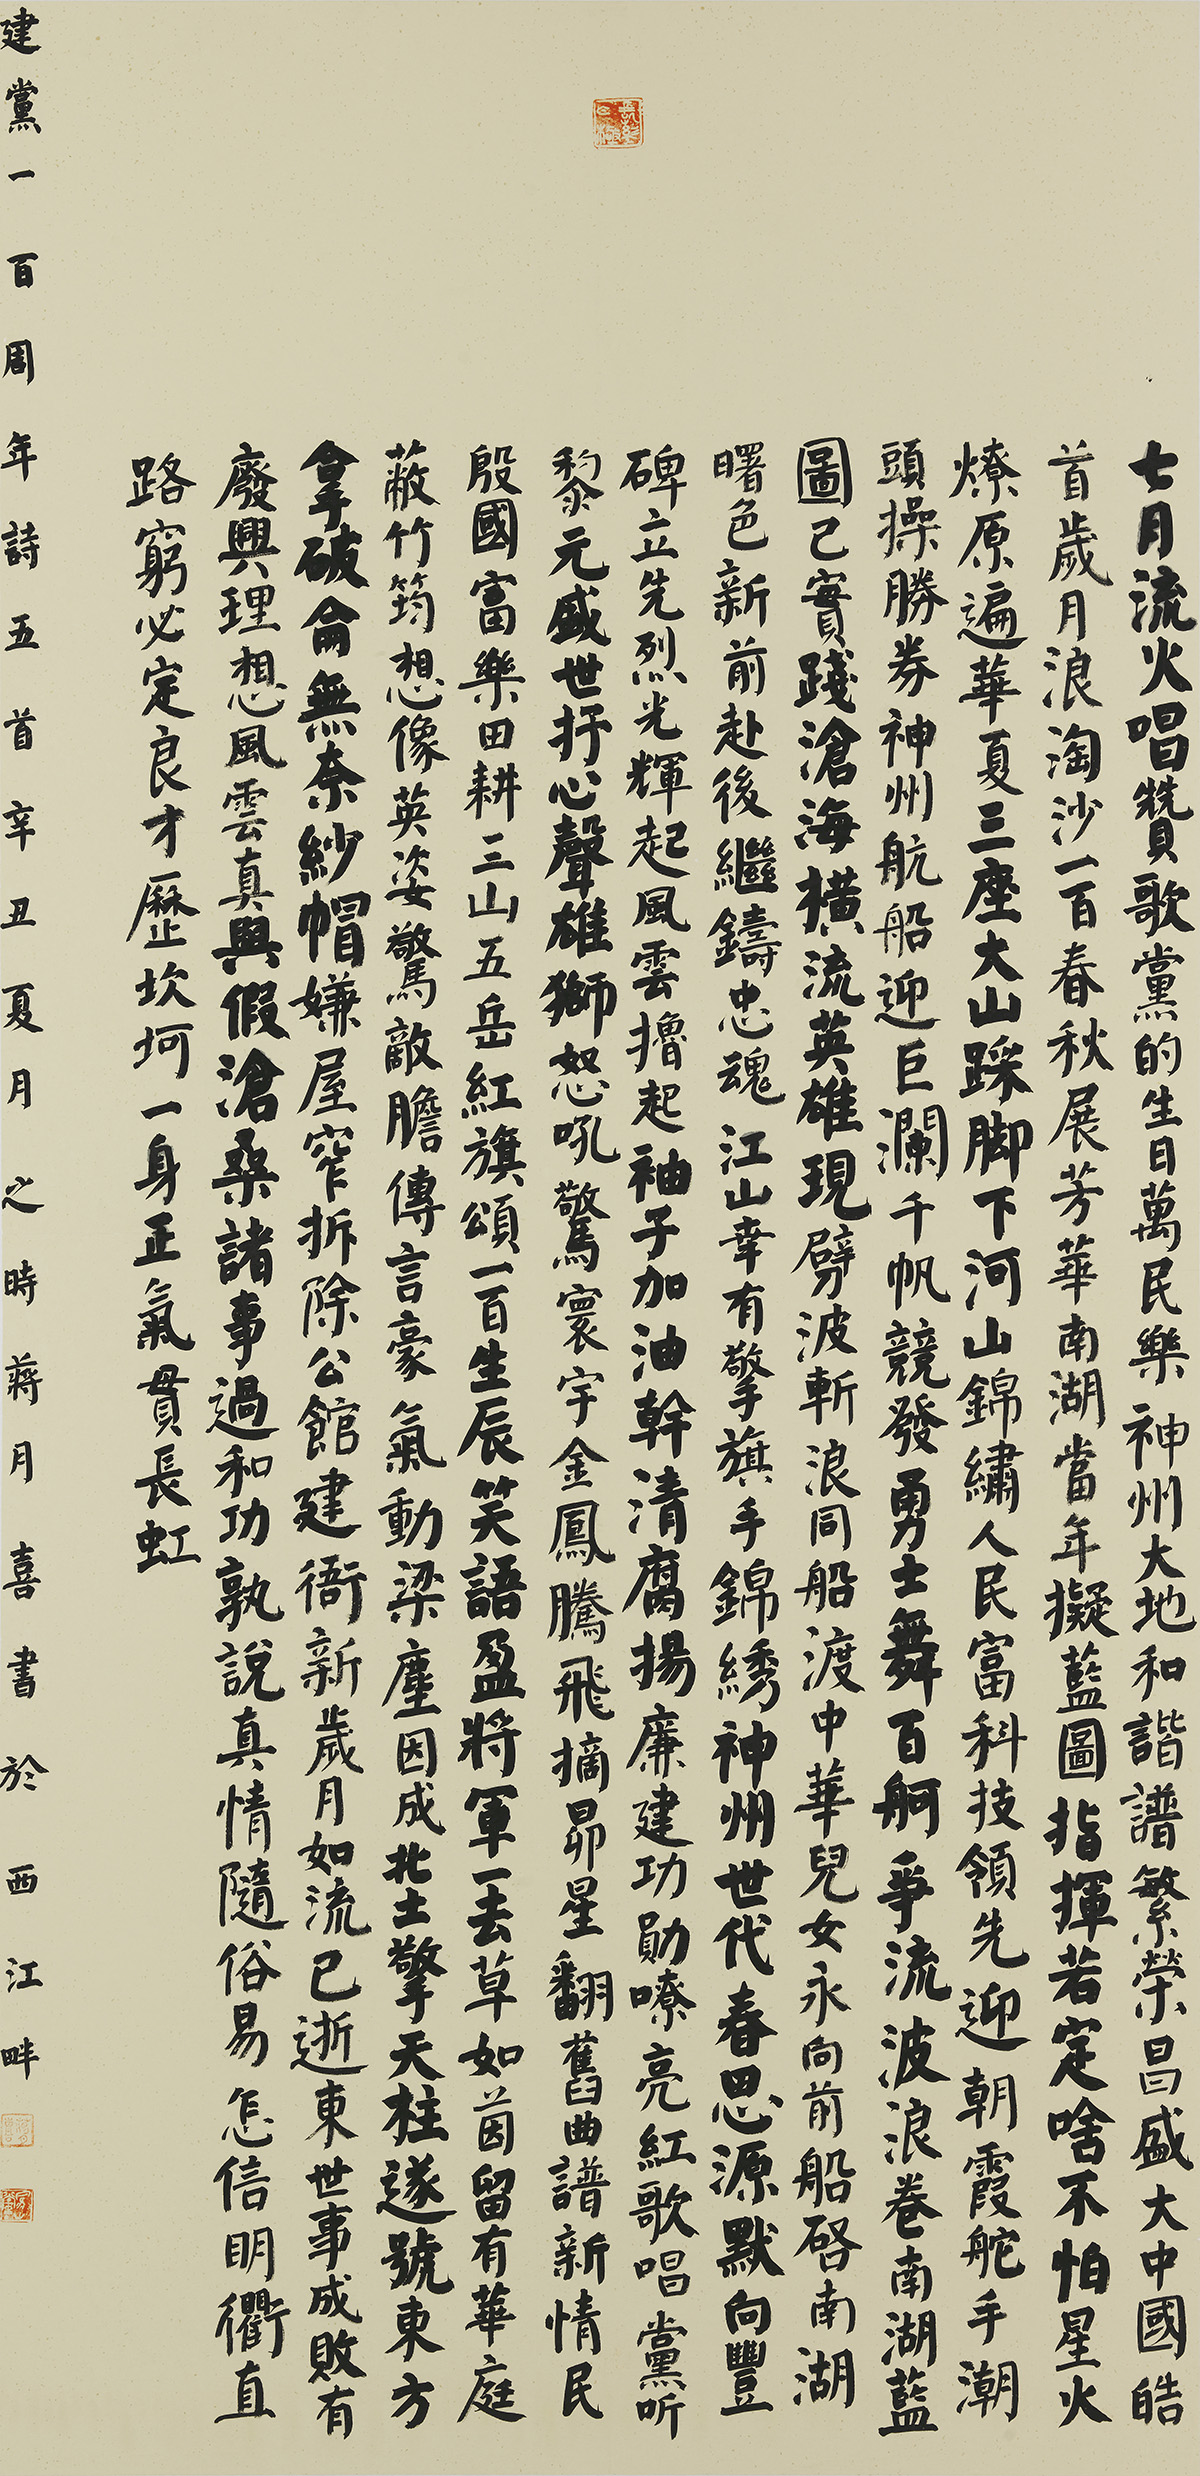 七月流火唱贊歌黨的生日萬民樂神州大地和諧譜繁榮昌盛大中國皓
首歲月浪淘沙一百春秋展芳華南湖當年擬藍圖指揮若定啥不怕星火
燎原遍華夏三座大山踩脚下河山錦繡人民富科技領先迎朝霞舵手潮
頭操勝券神州航船迎巨瀾千帆競發勇士舞百舸爭流波浪卷南湖藍
圖已實踐滄海橫流英雄現劈波斬浪同船渡中華兒女永向前船啓南湖
曙色新前赴後繼鑄忠魂江山幸有擎旗手錦綉神州世代春思源默向豐
碑立先烈光輝起風雲擼起袖子加油幹清腐揚廉建功勛嘹亮紅歌唱黨听
黎元盛世抒心聲雄獅怒吼驚寰宇金鳳騰飛摘昴星翻舊曲譜新情民
殷國富樂田耕三山五岳紅旗頌一百生辰笑語盈將軍一去草如茵留有華庭
蔽竹筠想像英姿驚敵膽傳言豪氣動梁塵因成北土擎天柱遂號東方
拿破侖無奈紗帽嫌屋窄拆除公館建衙新歲月如流已逝東世事成敗有
廢興理想風雲真與假滄桑諸事過和功孰說真情隨俗易怎信明衢直
路窮必定良才歷坎坷一身正氣貫長虹
建黨一百周年詩五首辛丑夏月之時蔣月喜書於西江畔